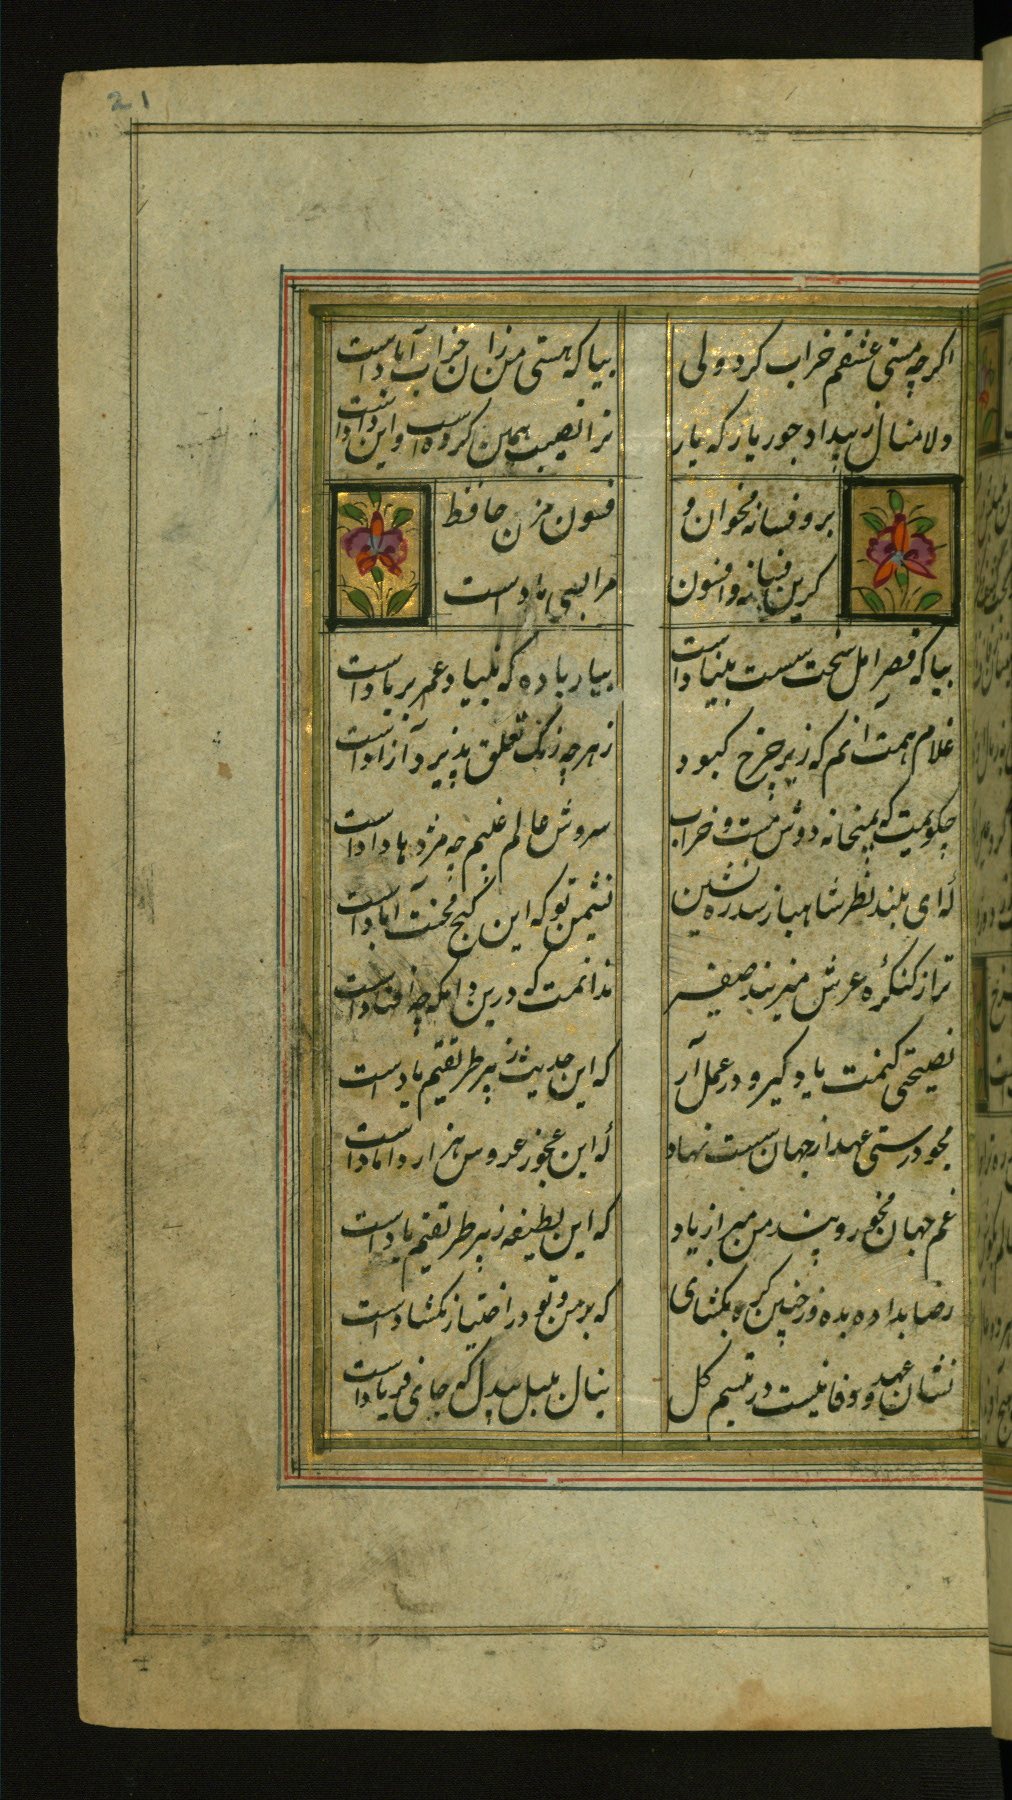 21
اگرچه مستی عشقم خراب کرد ولی
بیا که هستی من زان خراب آبادست
دلا منال ز بیداد جور یار که یار
ترا نصیب همین کردست و این دادست
برو فسانه مخوان و
فسون مزن حافظ
کزین فسانه و افسون
مرا بسی یادست
بیا که قصر امل سخت سست بنیادست
بیار باده که بنیاد عمر بر بادست
غلام همت آنم که زیر چرخ کبود
ز هرچه رنگ تعلق پذیرد آزادست
چگویمت که بمیخانه دوش مست و خراب
سروش عالم غیبم چه مژدها دادست
که ای بلند نظر شاهباز سدره نشین
نشیمن تو که این کنج محنت آبادست
ترا ز کنگره عرش میزنند صفیر
ندانمت که درین دامگه چه افتادست
نصیحتی کنمت یاد گیر و در عمل آر
که این حدیث ز پیر طریقتم یادست
مجو درستی عهد از جهان سست نهاد
که این عجوز عروس هزار دامادست
غم جهان مخور و پند من مبر از یاد
که این لطیفه ز پیر طریقتم یادست
رضا بداده بده وز جبین گره بگشای
که بر من و تو در اختیار نگشادست
نشان عهد و وفا نیست در تبسم گل
بنال بلبل بیدل که جای فریادست